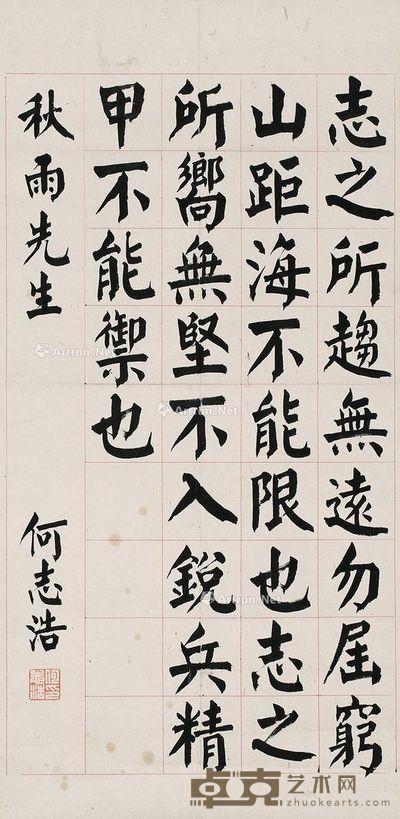 志之所趨無遠勿屆窮
山距海不能限也志之
所嚮無堅不入銳兵精
甲不能禦也
秋雨先生
何志浩
Artron.Net
Artron.Net
Artron.Net
Artron.Net
卓克艺术网
zhuokearts.com